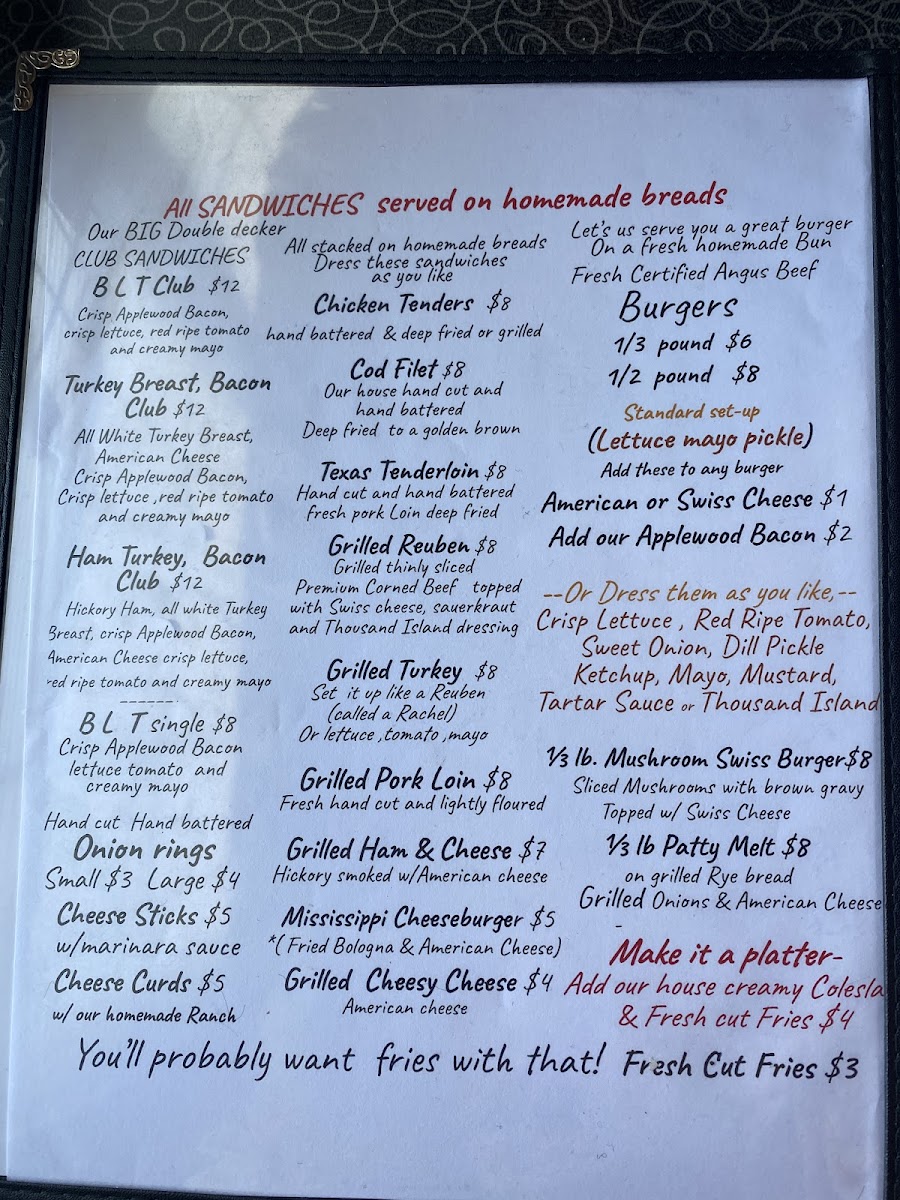 All SANDWICHES served on homemade breads
Our BIG Double decker
CLUB SANDWICHES
B L T Club $12
Crisp Applewood Bacon,
crisp lettuce, red ripe tomato
and creamy mayo
Turkey Breast, Bacon
Club $12
All White Turkey Breast,
American Cheese
Crisp Applewood Bacon,
Crisp lettuce ,red ripe tomato
and creamy mayo
Ham Turkey, Bacon
Club $12
Hickory Ham, all white Turkey
Breast, crisp Applewood Bacon,
American Cheese crisp lettuce,
red ripe tomato and creamy mayo
------
B L T single $8
Crisp Applewood Bacon
lettuce tomato and
creamy mayo
Hand cut Hand battered
Onion rings
Small $3 Large $4
Cheese Sticks $5
w/marinara sauce
Cheese Curds $5
w/ our homemade Ranch
All stacked on homemade breads
Dress these sandwiches
as you like
Chicken Tenders $8
hand battered & deep fried or grilled
Cod Filet $8
Our house hand cut and
hand battered
Deep fried to a golden brown
Texas Tenderloin $8
Hand cut and hand battered
fresh pork Loin deep fried
Grilled Reuben $8
Grilled thinly sliced
Premium Corned Beef topped
with Swiss cheese, sauerkraut
and Thousand Island dressing
Grilled Turkey $8
Set it up like a Reuben
(called a Rachel)
Or lettuce ,tomato ,mayo
Grilled Pork Loin $8
Fresh hand cut and lightly floured
Grilled Ham & Cheese $7
Hickory smoked w/American cheese
Mississippi Cheeseburger $5
*(Fried Bologna & American Cheese)
Grilled Cheesy Cheese $4
American cheese
Let's us serve you a great burger
On a fresh homemade Bun
Fresh Certified Angus Beef
Burgers
1/3 pound $6
1/2 pound $8
Standard set-up
(Lettuce mayo pickle)
Add these to any burger
American or Swiss Cheese $1
Add our Applewood Bacon $2
--Or Dress them as you like,--
Crisp Lettuce , Red Ripe Tomato,
Sweet Onion, Dill Pickle
Ketchup, Mayo, Mustard,
Tartar Sauce or Thousand Island
⅓ lb. Mushroom Swiss Burger$8
Sliced Mushrooms with brown gravy
Topped w/ Swiss Cheese
⅓ lb Patty Melt $8
on grilled Rye bread
Grilled Onions & American Cheese
-
Make it a platter-
Add our house creamy Colesla
& Fresh cut Fries $4
You'll probably want fries with that! Fresh Cut Fries $3